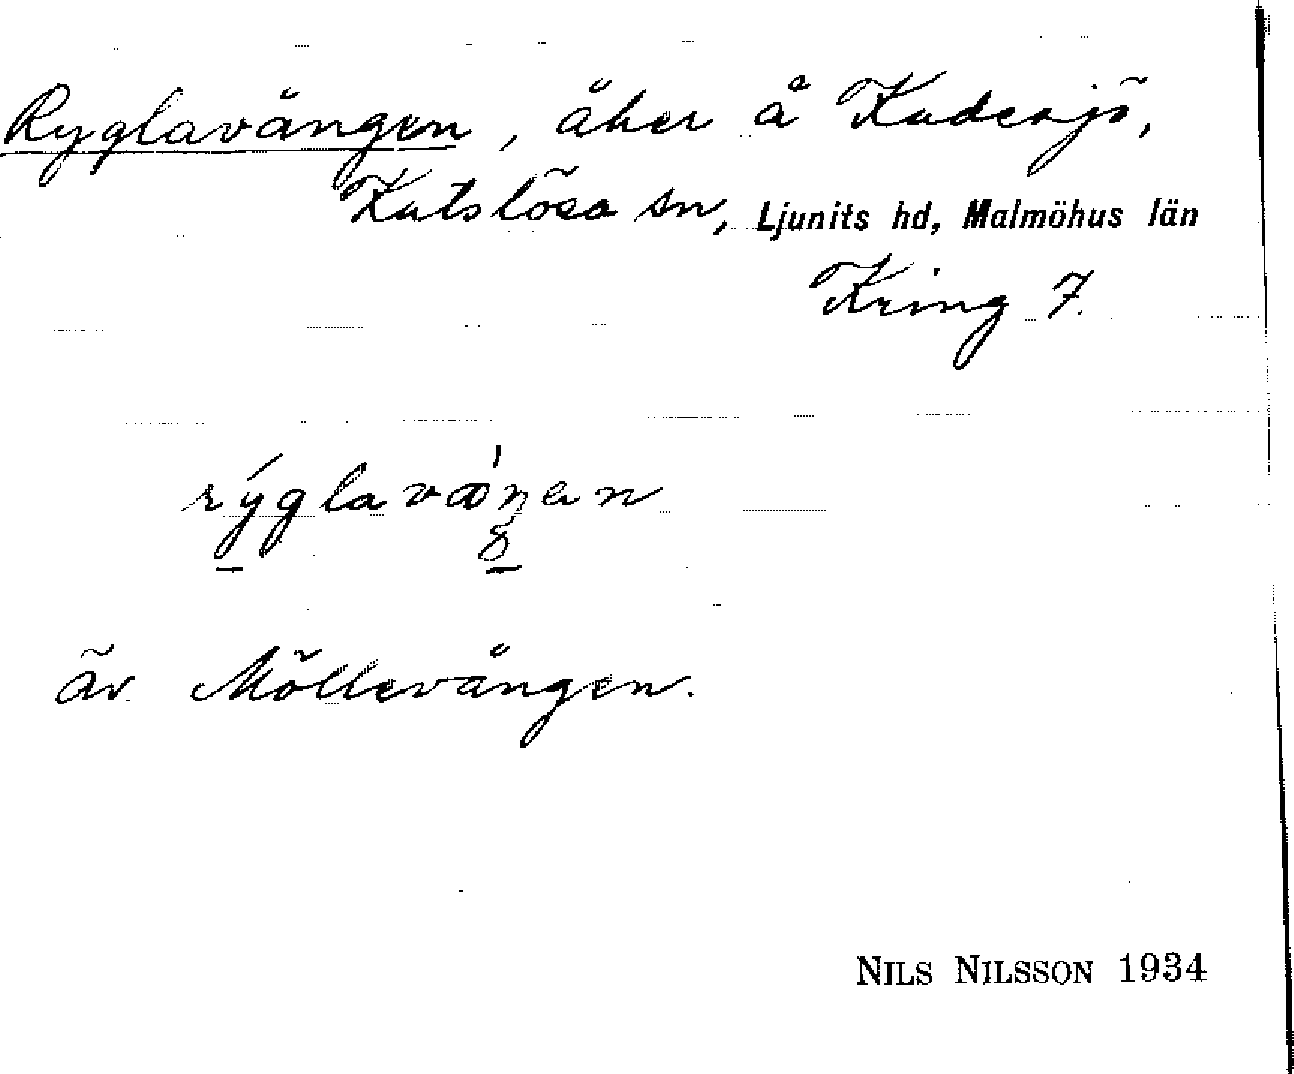 Ryglavången, åker å Kadesjö,
Katslösa sn, Ljunits hd, Malmöhus län
Kring 7.
rýglavaŋ́an
äv. Möllevången.
NILS NILSSON 1934